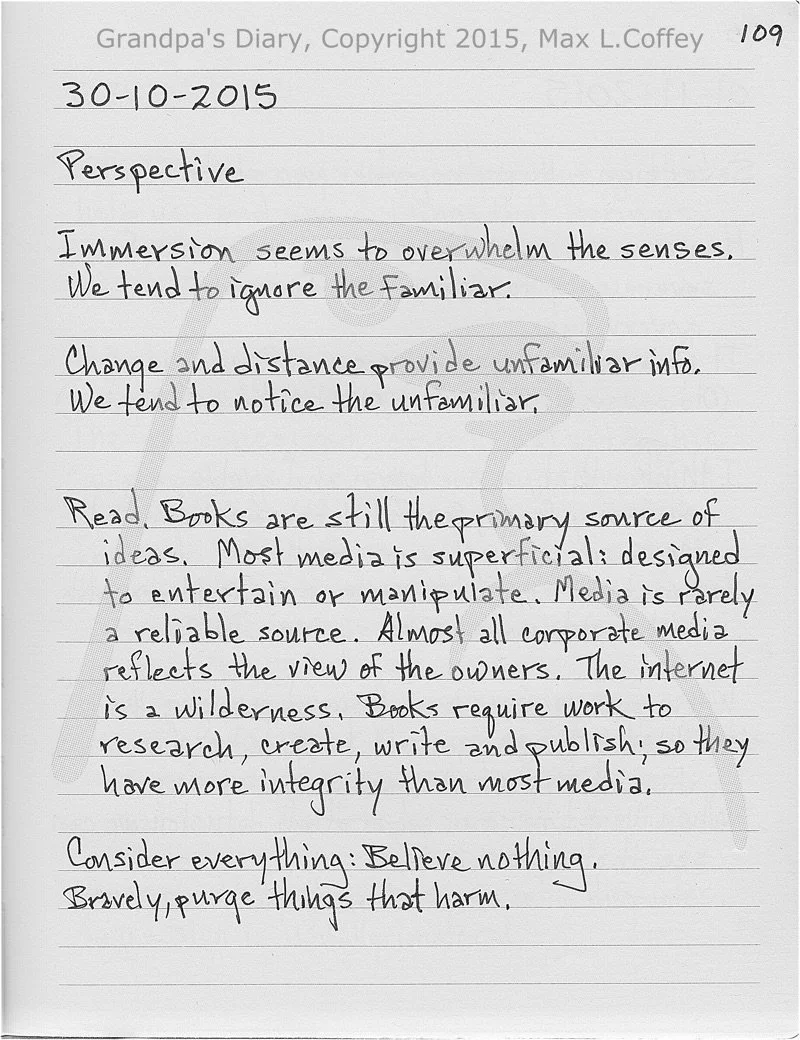 Grandpa's Diary, Copyright 2015, Max L.Coffey
109
30-10-2015
Perspective
Immersion seems to overwhelm the senses.
We tend to ignore the familiar.
Change and distance provide unfamiliar info.
We tend to notice the unfamiliar.
Read. Books are still the primary source of
ideas. Most media is superficial: designed
to entertain or manipulate. Media is rarely
a reliable source. Almost all corporate media
reflects the view of the owners. The internet
is a wilderness. Books require work to
research, create, write and publish; so they
have more integrity than most media.
Consider everything: Believe nothing.
Bravely, purge things that harm.